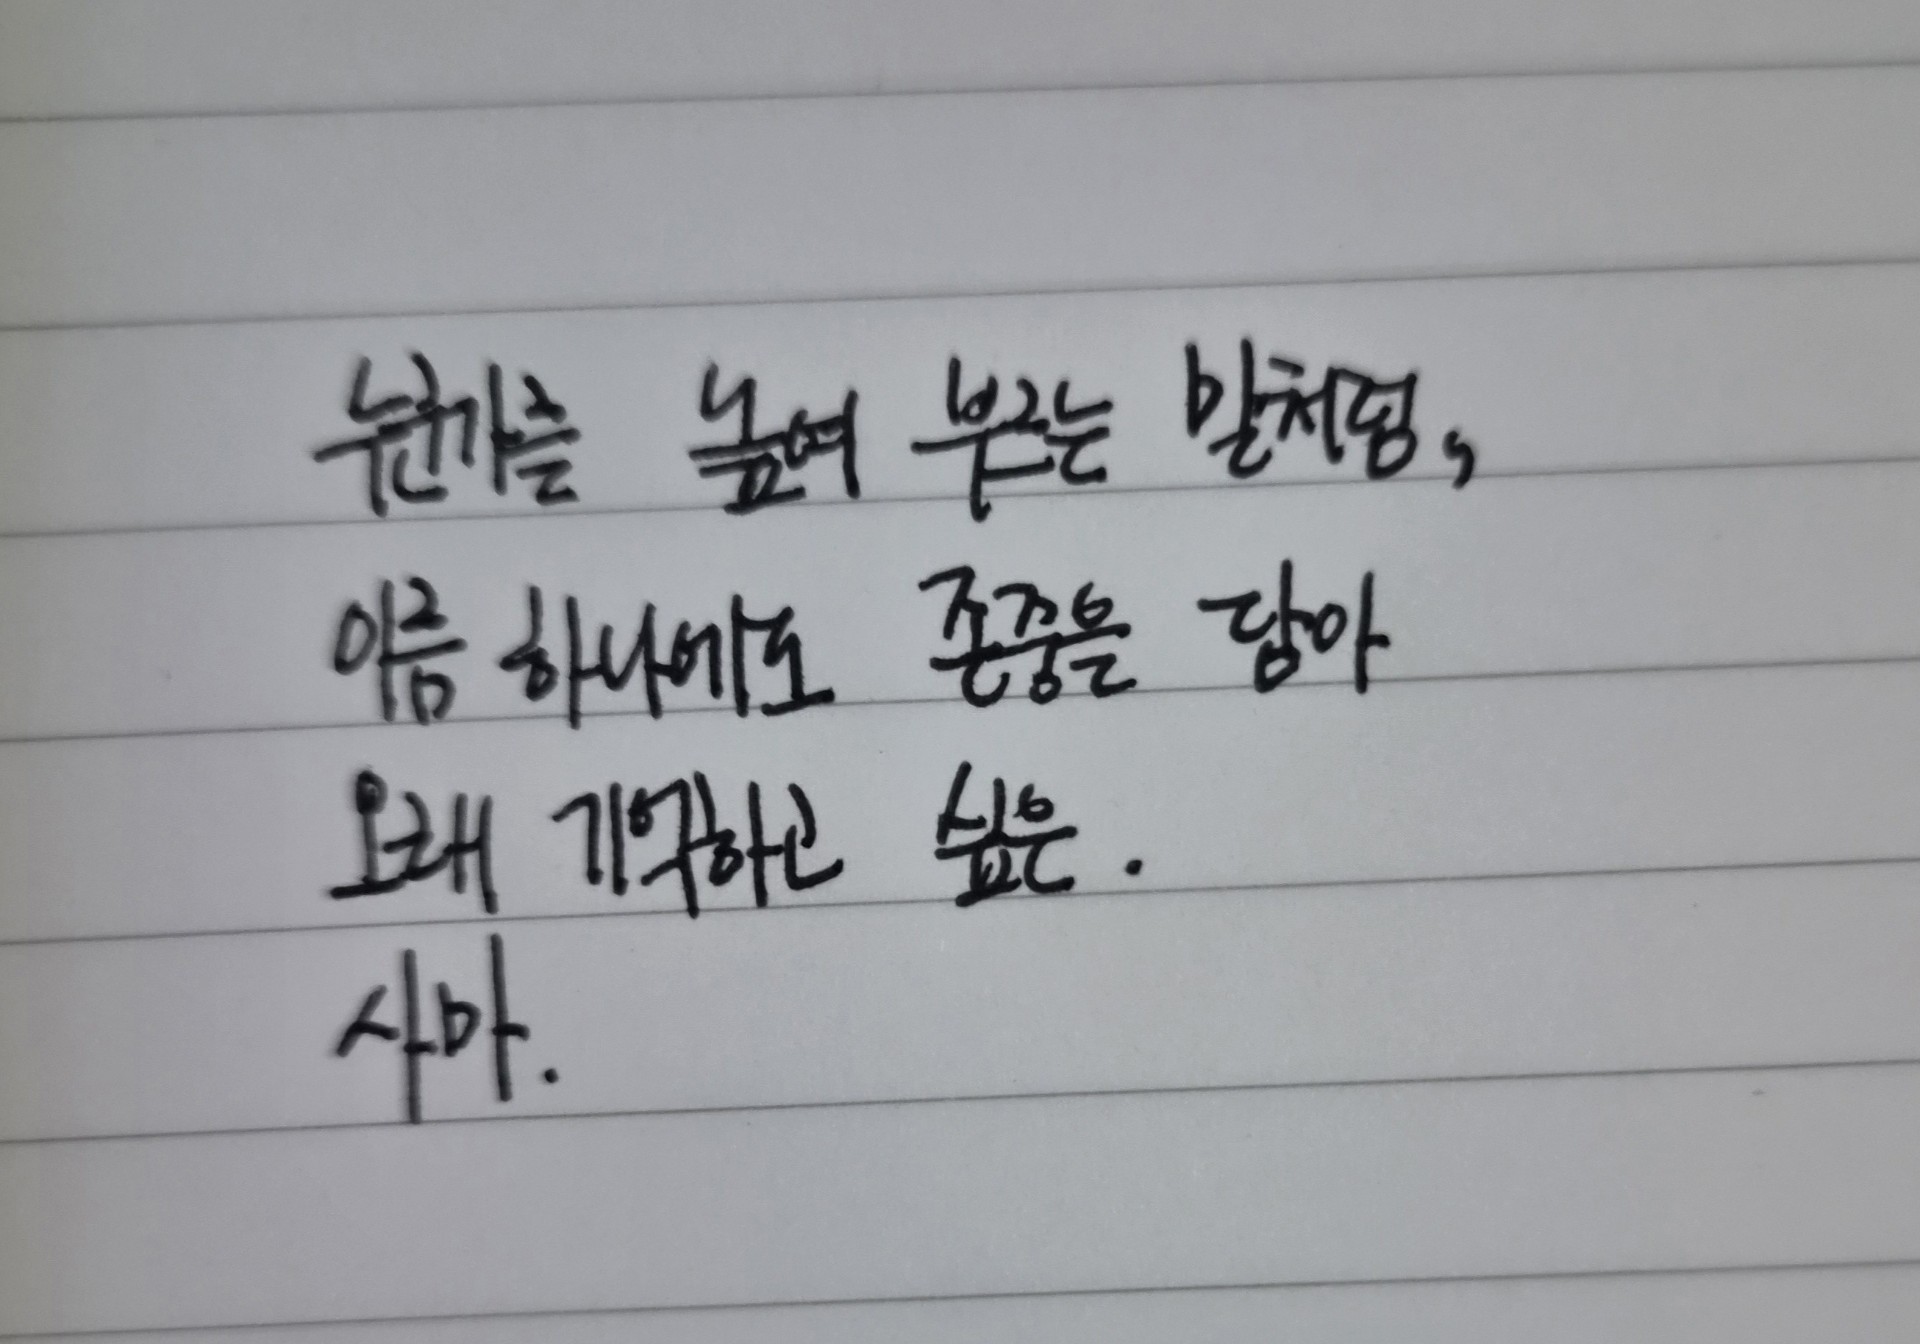 누군가를 높여 부르는 말처럼,
이름 하나에도 존중을 담아
오래 기억하고 싶은.
사마.